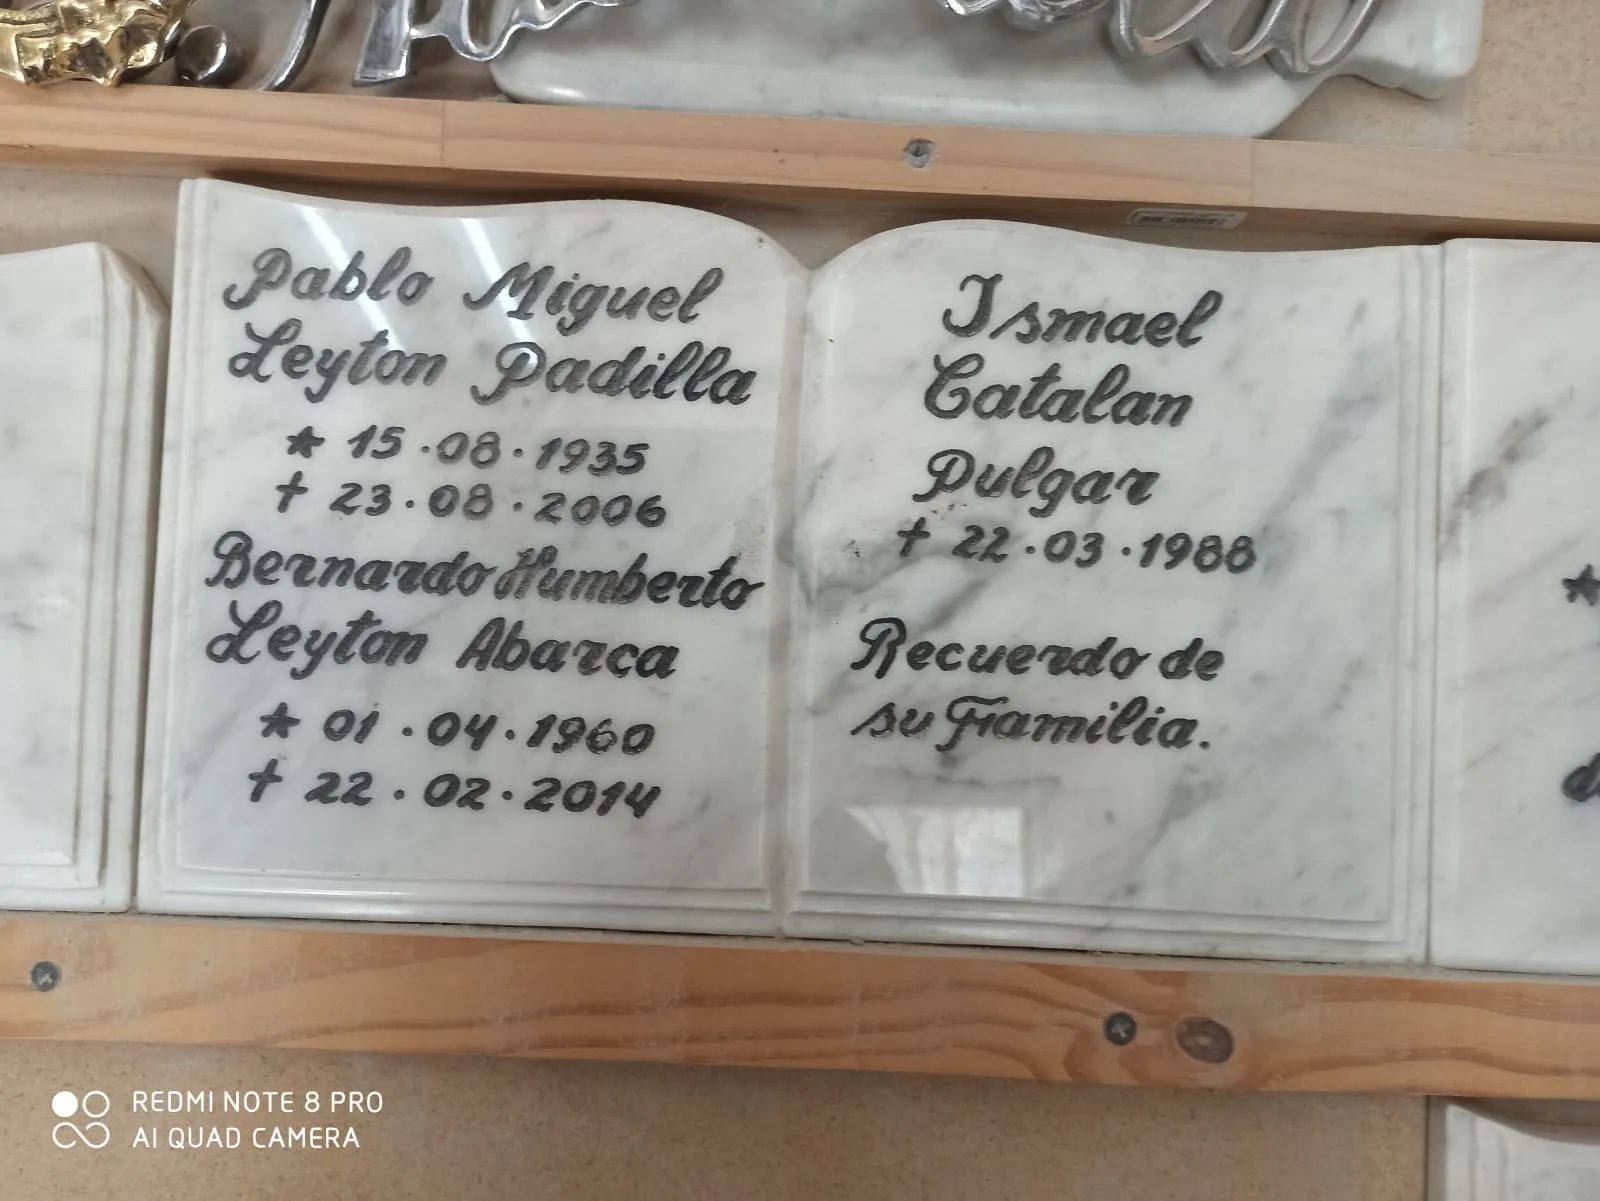 Pablo Miguel
Leyton Padilla
* 15.08.1935
† 23.08.2006
Bernardo Humberto
Leyton Abarca
* 01.04.1960
† 22.02.2014
Ismael
Catalan
Pulgar
† 22.03.1988
Recuerdo de
su Familia.
*
REDMI NOTE 8 PRO
AI QUAD CAMERA